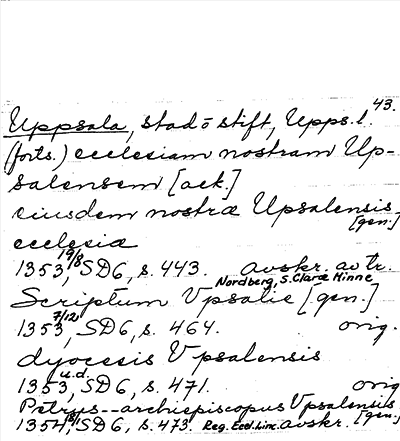 43.
Uppsala, stad o stift, Upps. l.
(forts.) ecclesiam nostram Up-
salensem [ack.]
eiusdem nostræ Upsalensis
[gen.]
ecclesiæ
19/8
1353, SD6, s. 443. avskr. av tr.
Nordberg, S. Claræ Minne
Scriptum Vpsalie [gen.]
7/12
1353, SD6, s. 464. orig.
dyocesis Vpsalensis
u.d.
1353, SD6, s. 471. orig
Petrus -- archiepiscopus Vpsalensis
1354, SD6, s. 473. Reg. Eccl. Lin. avskr. [gen.]